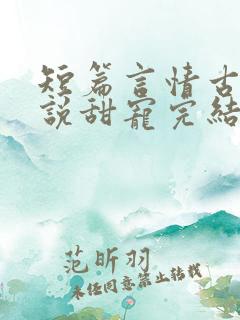 短篇言情古
說甜寵完結
范昕羽
未经同意禁止转载